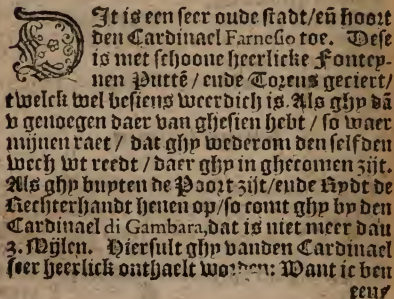 DIt is een seer oude stadt/eñ hoort
den Cardinael Farnesio toe. Dese
is met schoone heerlicke Fonteynen
Puttẽ / ende Torens geciert/
twelck wel besiens weerdich is. Als ghy dã
v genoegen daer van ghesien hebt / so waer
mijnen raet / dat ghy wederom den selfden
wech wt reedt / daer ghy in ghecomen zijt.
Als ghy buyten de Poort zijt/ende Rydt de
Rechterhandt henen op/so comt ghy by den
Cardinael di Gambara,dat is niet meer dan
3. Mijlen. Hier sult ghy vanden Cardinael
seer heerlick onthaelt worden: Want it ben
eens